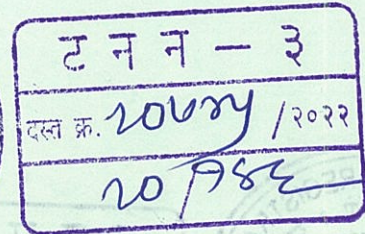 ट न न - ३
दस्त क्र. २०७४५ /२०२२
२० /१४६